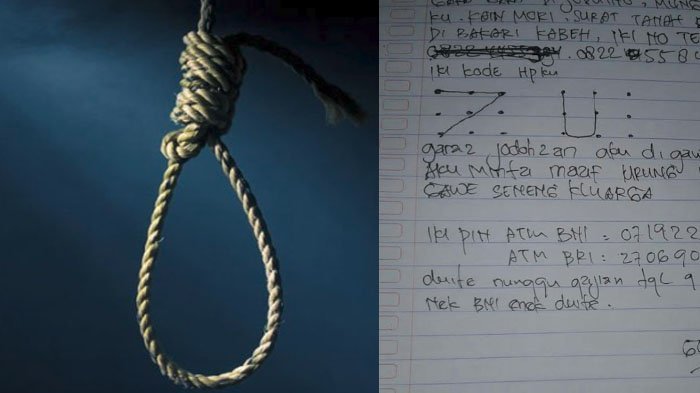 KU. KAIN MORI, SURAT TANAH
DI BAKARI KABEH, IKI NO
0822 5584
IKI KODE HPKU
gara2 jodohzan aku di
AKU MINTA MAAF URUNG
GAWE SENENG KLUARGA
IKI PIN ATM BNI : 071922
ATM BRI : 270690
duite nunggu gajian tgl 9
NEK BNI enek duite.